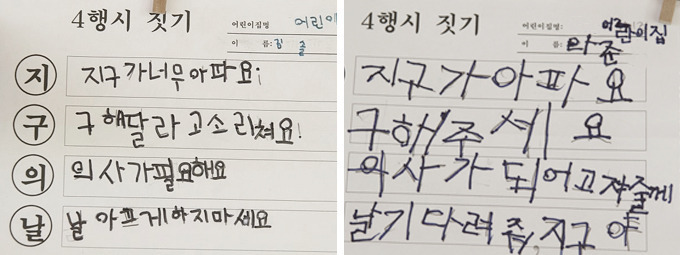 4행시 짓기
어린이집명 어린이
이 름:
지 지구가너무아파요!
구 구해달라고소리쳐요!
의 의사가필요해요
날 날 아프게하지마세요
4행시 짓기
어린이집명: 어린이집
이 름: 라준
지구가아파요
구해주세요
의사가되어고쳐줄게
날기다려줘,지구야